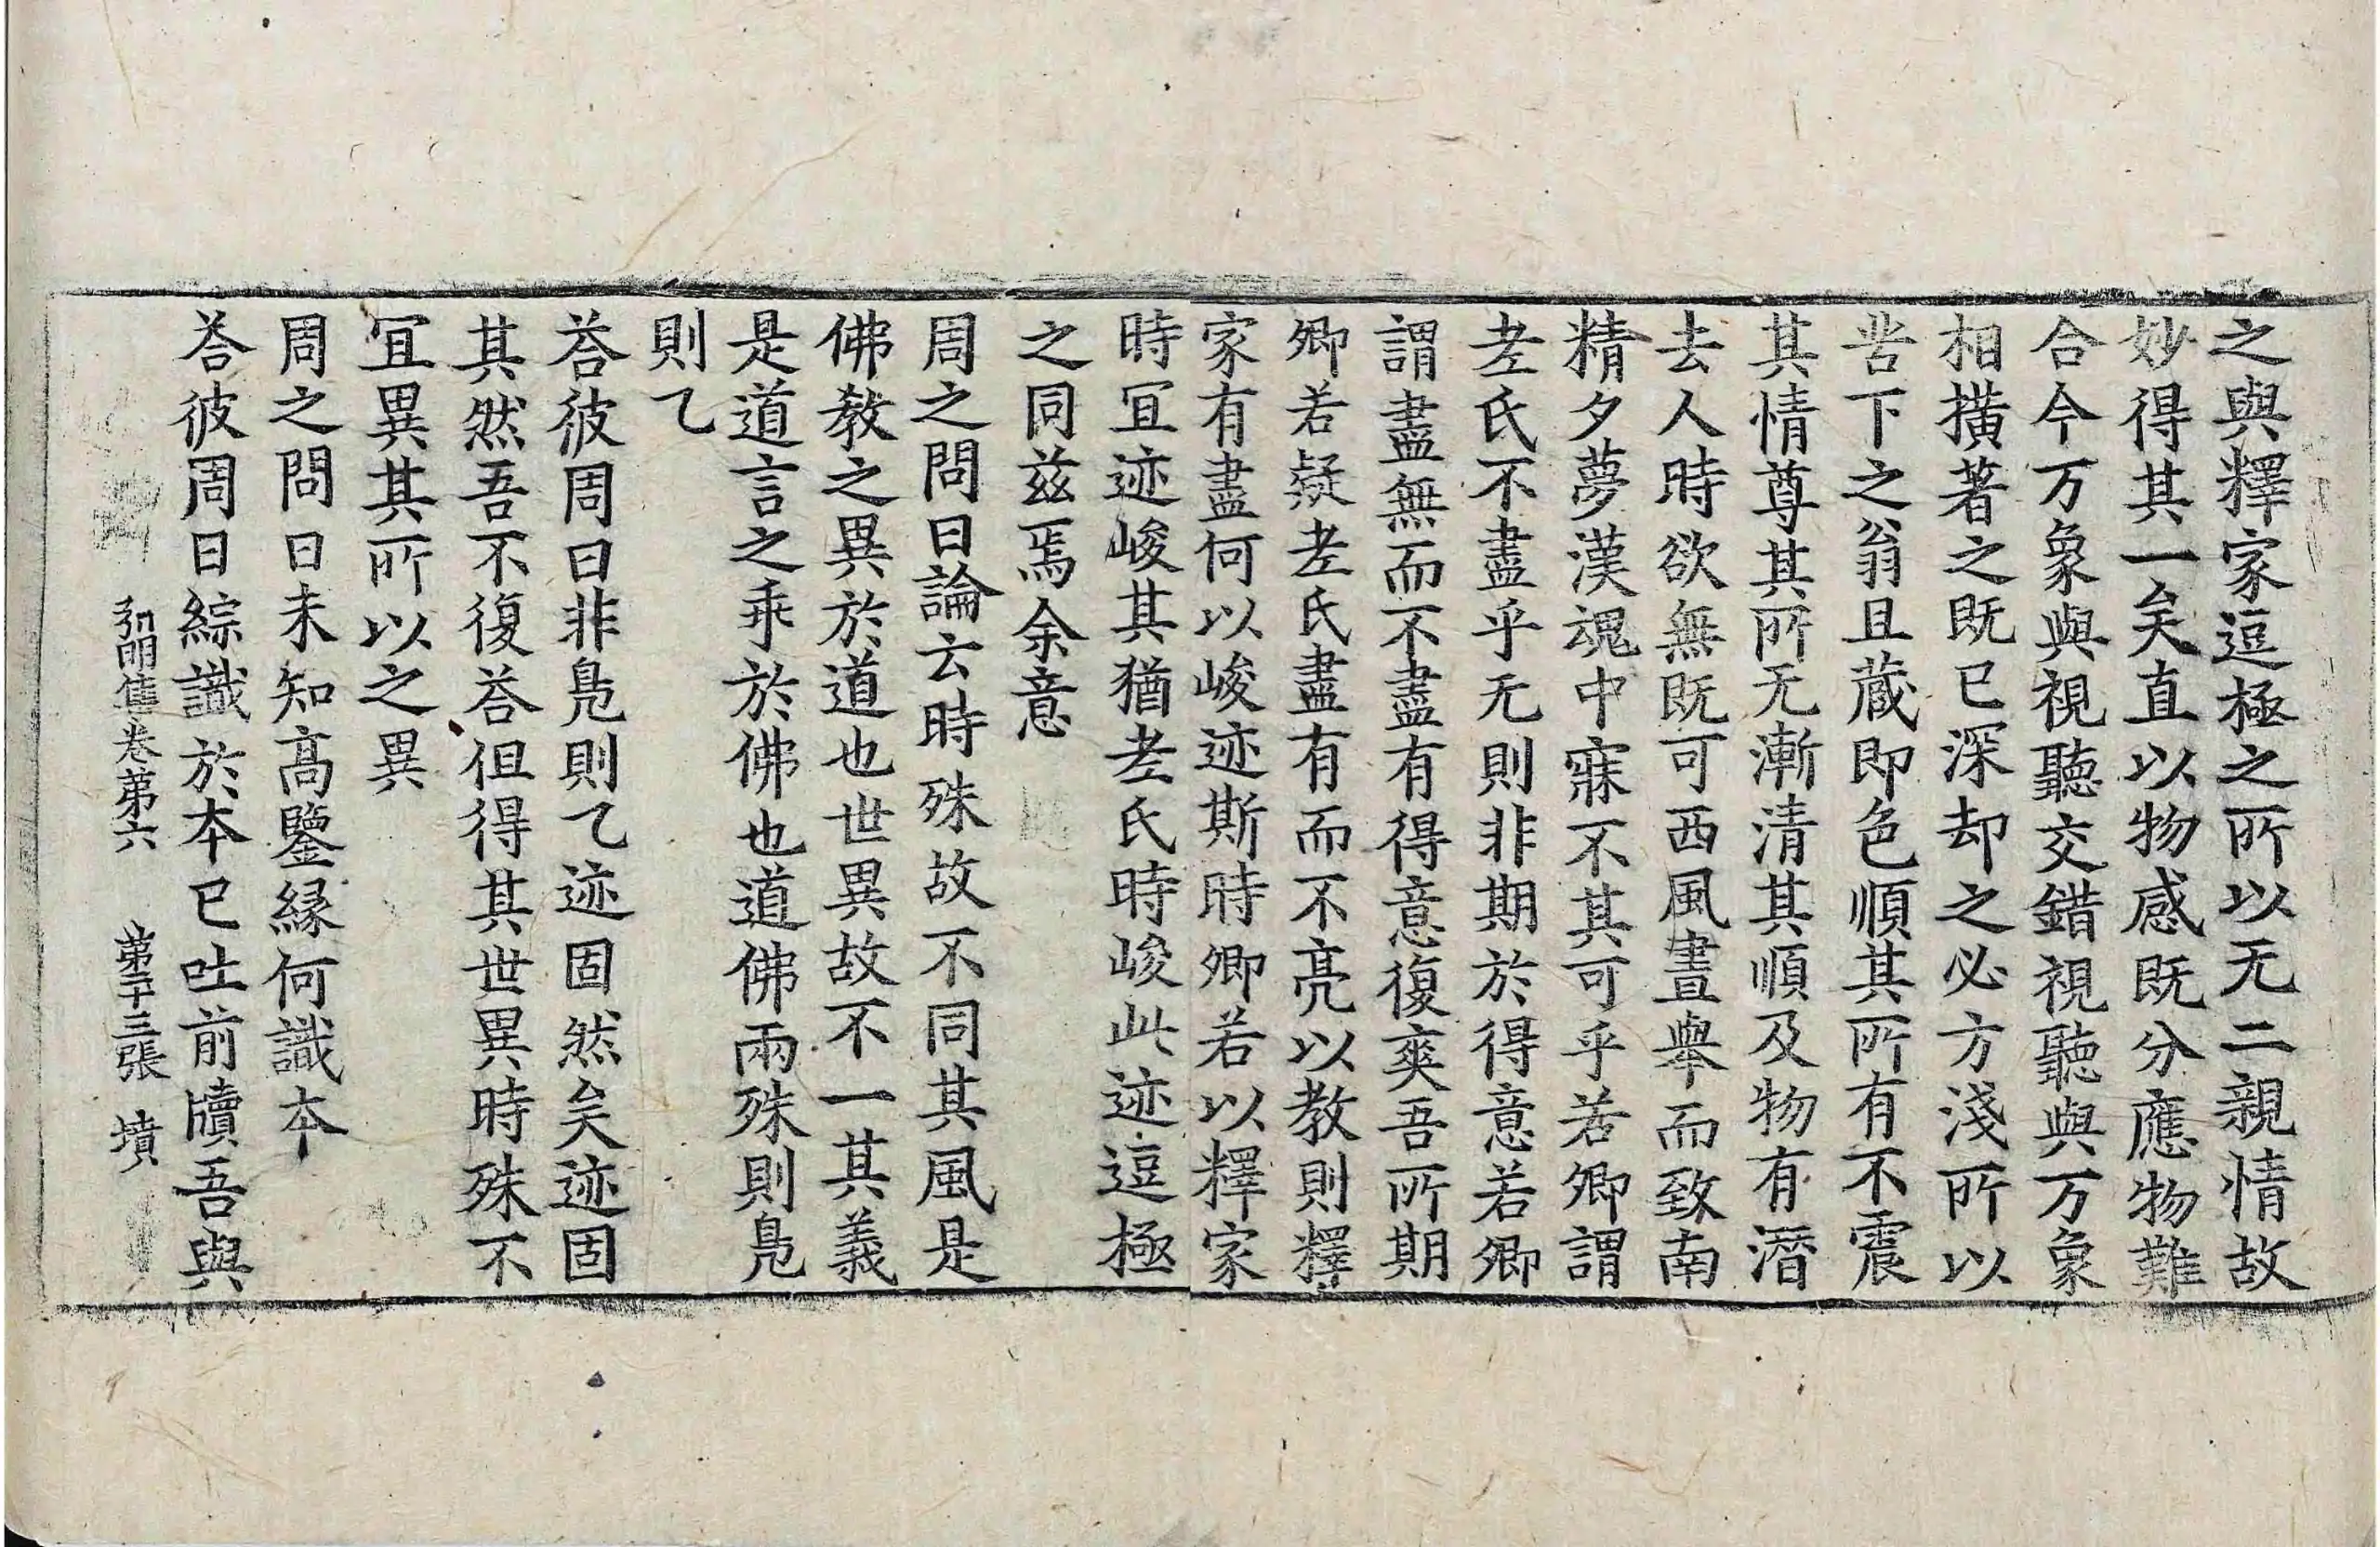 之與釋家逗極之所以无二親情故
妙得其一矣直以物感既分應物難
合今万象與視聽交錯視聽與万象
相撗著之既已深却之必方淺所以
苦下之翁且蔵即色順其所有不震
其情尊其所无漸清其順及物有潛
去人時欲無既可西風晝舉而致南
精夕夢漢魂中寐不其可乎若卿謂
老氏不盡乎无則非期於得意若卿
謂盡無而不盡有得意復爽吾所期
卿若疑老氏盡有而不亮以教則釋
家有盡何以峻迹斯時卿若以釋家
時冝迹峻其猶老氏時峻此迹逗極
之同茲焉余意
周之問曰論云時殊故不同其風是
佛教之異於道也世異故不一其義
是道言之乖於佛也道佛兩殊則鳧
則乙
荅彼周曰非鳧則乙迹固然矣迹固
其然吾不復荅但得其世異時殊不
冝異其所以之異
周之問曰未知高鑒縁何識本
荅彼周曰綜識於本已吐前牘吾與
弘明集卷第六 第十三張 墳